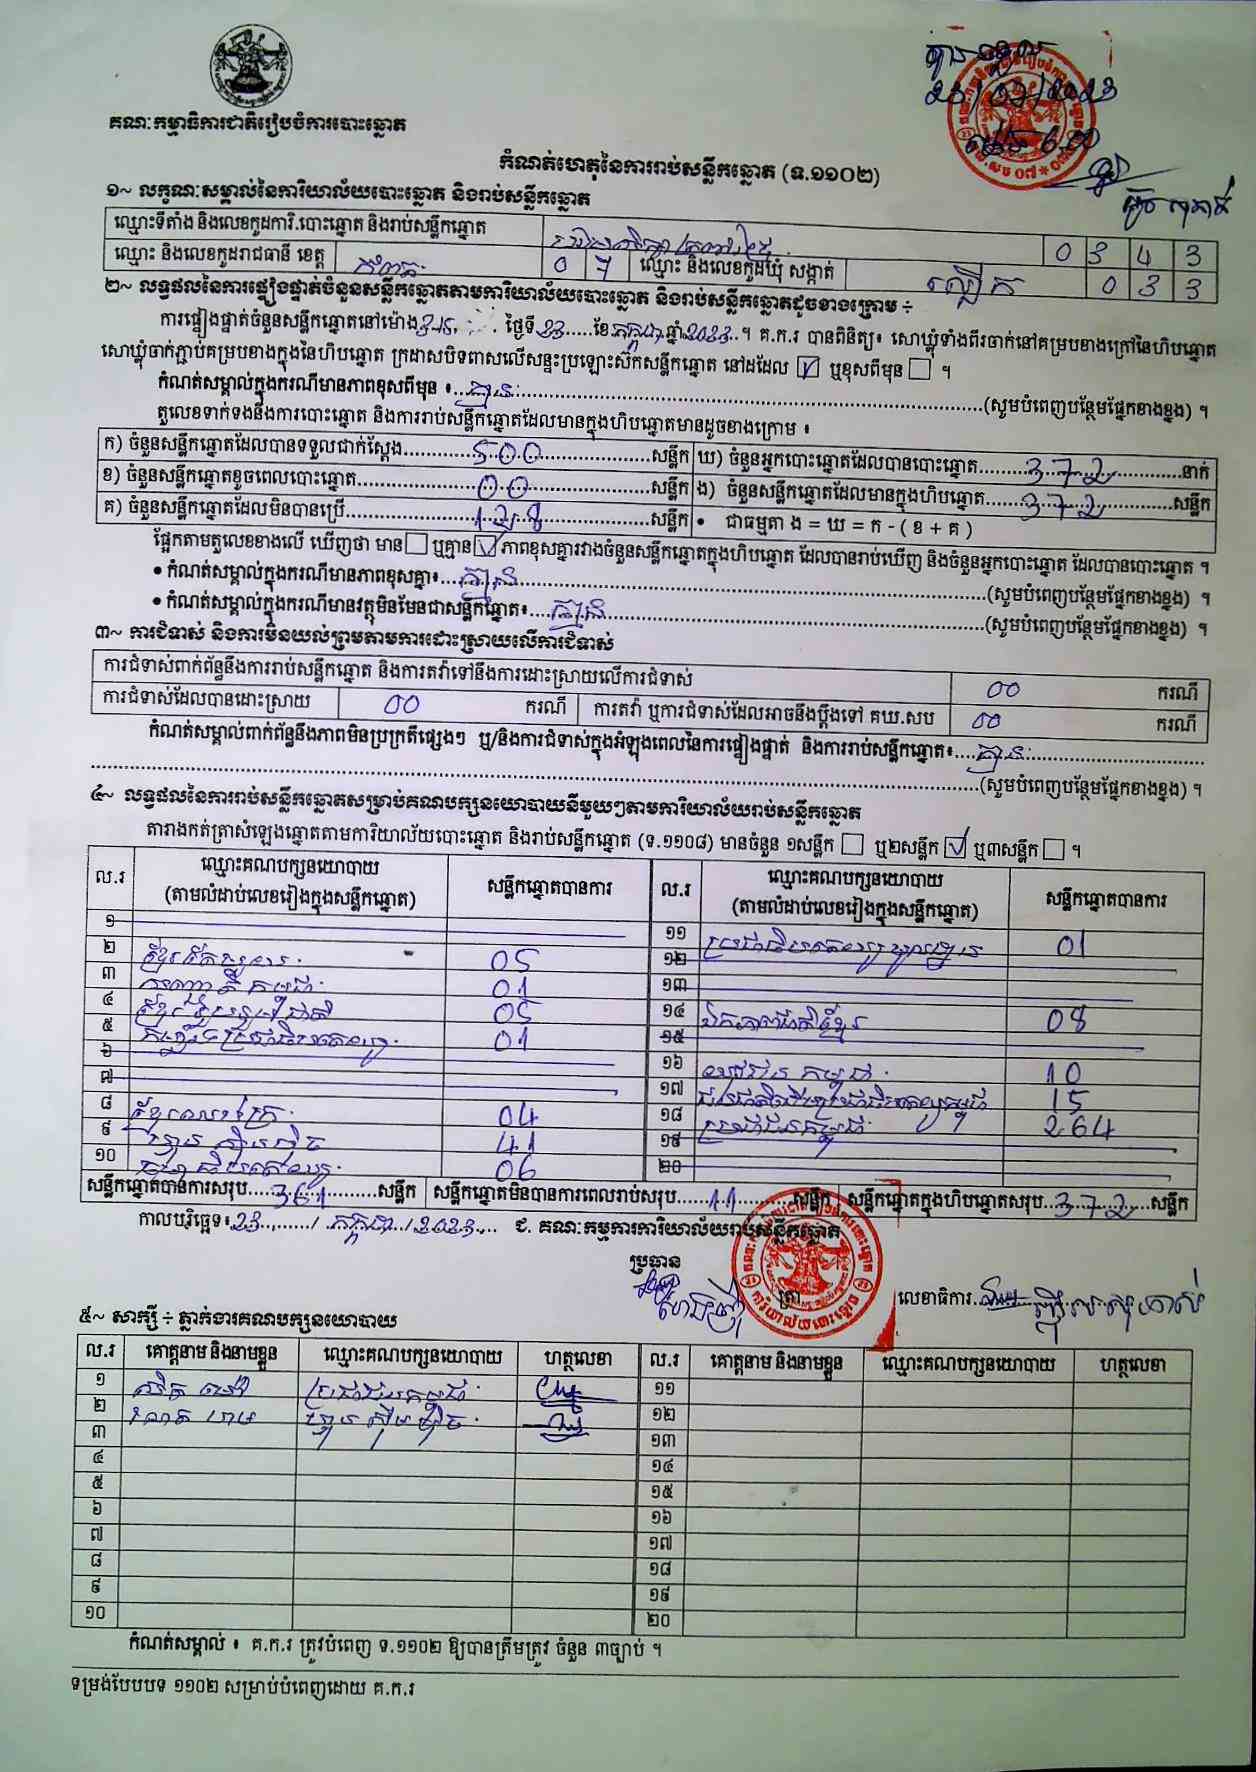 គណៈកម្មាធិការជាតិរៀបចំការបោះឆ្នោត
23/07/2023
កំណត់ហេតុនៃការរាប់សន្លឹកឆ្នោត (ទ.១១០២)
១~ លក្ខណៈសម្គាល់នៃការិយាល័យបោះឆ្នោត និងរាប់សន្លឹកឆ្នោត
ឈ្មោះទីតាំង និងលេខកូដការិ.បោះឆ្នោត និងរាប់សន្លឹកឆ្នោត 0 3 4 3
ឈ្មោះ និងលេខកូដរាជធានី ខេត្ត កំពត 0 7 ឈ្មោះ និងលេខកូដឃុំ សង្កាត់ ល្បើក 0 3 3
២~ លទ្ធផលនៃការផ្ទៀងផ្ទាត់ចំនួនសន្លឹកឆ្នោតតាមការិយាល័យបោះឆ្នោត និងរាប់សន្លឹកឆ្នោតដូចខាងក្រោម ៖
ការផ្ទៀងផ្ទាត់ចំនួនសន្លឹកឆ្នោតនៅម៉ោង ថ្ងៃទី 23 ខែ កក្កដា ឆ្នាំ 2023 ។ គ.ក.រ បានពិនិត្យ៖ សោឃ្លុំទាំងពីរចាក់នៅគម្របខាងក្រៅនៃហិបឆ្នោត
សោឃ្លុំចាក់ភ្ជាប់គម្របខាងក្នុងនៃហិបឆ្នោត ក្រដាសបិទពាសលើសន្ទះប្រឡោះស៊កសន្លឹកឆ្នោត នៅដដែល ☑ ឬខុសពីមុន ☐ ។
កំណត់សម្គាល់ក្នុងករណីមានភាពខុសពីមុន ៖ គ្មាន (សូមបំពេញបន្ថែមផ្នែកខាងខ្នង) ។
តួលេខទាក់ទងនឹងការបោះឆ្នោត និងការរាប់សន្លឹកឆ្នោតដែលមានក្នុងហិបឆ្នោតមានដូចខាងក្រោម ៖
ក) ចំនួនសន្លឹកឆ្នោតដែលបានទទួលជាក់ស្តែង 500 សន្លឹក ឃ) ចំនួនអ្នកបោះឆ្នោតដែលបានបោះឆ្នោត 372 នាក់
ខ) ចំនួនសន្លឹកឆ្នោតខូចពេលបោះឆ្នោត 00 សន្លឹក ង) ចំនួនសន្លឹកឆ្នោតដែលមានក្នុងហិបឆ្នោត 372 សន្លឹក
គ) ចំនួនសន្លឹកឆ្នោតដែលមិនបានប្រើ 128 សន្លឹក • ជាធម្មតា ង = ឃ = ក - ( ខ + គ )
ផ្អែកតាមតួលេខខាងលើ ឃើញថា មាន ☐ ឬគ្មាន ☑ ភាពខុសគ្នារវាងចំនួនសន្លឹកឆ្នោតក្នុងហិបឆ្នោត ដែលបានរាប់ឃើញ និងចំនួនអ្នកបោះឆ្នោត ដែលបានបោះឆ្នោត ។
• កំណត់សម្គាល់ក្នុងករណីមានភាពខុសគ្នា៖ គ្មាន (សូមបំពេញបន្ថែមផ្នែកខាងខ្នង) ។
• កំណត់សម្គាល់ក្នុងករណីមានវត្ថុមិនមែនជាសន្លឹកឆ្នោត៖ គ្មាន (សូមបំពេញបន្ថែមផ្នែកខាងខ្នង) ។
៣~ ការជំទាស់ និងការមិនយល់ព្រមតាមការដោះស្រាយលើការជំទាស់
ការជំទាស់ពាក់ព័ន្ធនឹងការរាប់សន្លឹកឆ្នោត និងការតវ៉ាទៅនឹងការដោះស្រាយលើការជំទាស់ 00 ករណី
ការជំទាស់ដែលបានដោះស្រាយ 00 ករណី ការតវ៉ា ឬការជំទាស់ដែលអាចនឹងប្តឹងទៅ គឃ.សប 00 ករណី
កំណត់សម្គាល់ពាក់ព័ន្ធនឹងភាពមិនប្រក្រតីផ្សេងៗ ឬ/និងការជំទាស់ក្នុងអំឡុងពេលនៃការផ្ទៀងផ្ទាត់ និងការរាប់សន្លឹកឆ្នោត៖ គ្មាន
(សូមបំពេញបន្ថែមផ្នែកខាងខ្នង) ។
៤~ លទ្ធផលនៃការរាប់សន្លឹកឆ្នោតសម្រាប់គណបក្សនយោបាយនីមួយៗតាមការិយាល័យរាប់សន្លឹកឆ្នោត
តារាងកត់ត្រាសំឡេងឆ្នោតតាមការិយាល័យបោះឆ្នោត និងរាប់សន្លឹកឆ្នោត (ទ.១១០៨) មានចំនួន ១សន្លឹក ☐ ឬ២សន្លឹក ☑ ឬ៣សន្លឹក ☐ ។
ល.រ ឈ្មោះគណបក្សនយោបាយ (តាមលំដាប់លេខរៀងក្នុងសន្លឹកឆ្នោត) សន្លឹកឆ្នោតបានការ ល.រ ឈ្មោះគណបក្សនយោបាយ (តាមលំដាប់លេខរៀងក្នុងសន្លឹកឆ្នោត) សន្លឹកឆ្នោតបានការ
១ ១១ 01
២ 05 ១២
៣ 01 ១៣
៤ 05 ១៤ ឯកភាពជាតិខ្មែរ 08
៥ 01 ១៥
៦ ១៦ យុវជនកម្ពុជា 10
៧ ១៧ 15
៨ 04 ១៨ ប្រជាជនកម្ពុជា 264
៩ ហ្វ៊ុនស៊ិនប៉ិច 41 ១៩
១០ 06 ២០
សន្លឹកឆ្នោតបានការសរុប 361 សន្លឹក សន្លឹកឆ្នោតមិនបានការពេលរាប់សរុប 11 សន្លឹក សន្លឹកឆ្នោតក្នុងហិបឆ្នោតសរុប 372 សន្លឹក
កាលបរិច្ឆេទ៖ 23 / កក្កដា / 2023 ជ. គណៈកម្មការការិយាល័យរាប់សន្លឹកឆ្នោត
ប្រធាន
ត្រា
លេខាធិការ
៥~ សាក្សី ៖ ភ្នាក់ងារគណបក្សនយោបាយ
ល.រ គោត្តនាម និងនាមខ្លួន ឈ្មោះគណបក្សនយោបាយ ហត្ថលេខា ល.រ គោត្តនាម និងនាមខ្លួន ឈ្មោះគណបក្សនយោបាយ ហត្ថលេខា
១ ប្រជាជនកម្ពុជា ១១
២ ហ្វ៊ុនស៊ិនប៉ិច ១២
៣ ១៣
៤ ១៤
៥ ១៥
៦ ១៦
៧ ១៧
៨ ១៨
៩ ១៩
១០ ២០
កំណត់សម្គាល់ ៖ គ.ក.រ ត្រូវបំពេញ ទ.១១០២ ឱ្យបានត្រឹមត្រូវ ចំនួន ៣ច្បាប់ ។
ទម្រង់បែបបទ ១១០២ សម្រាប់បំពេញដោយ គ.ក.រ